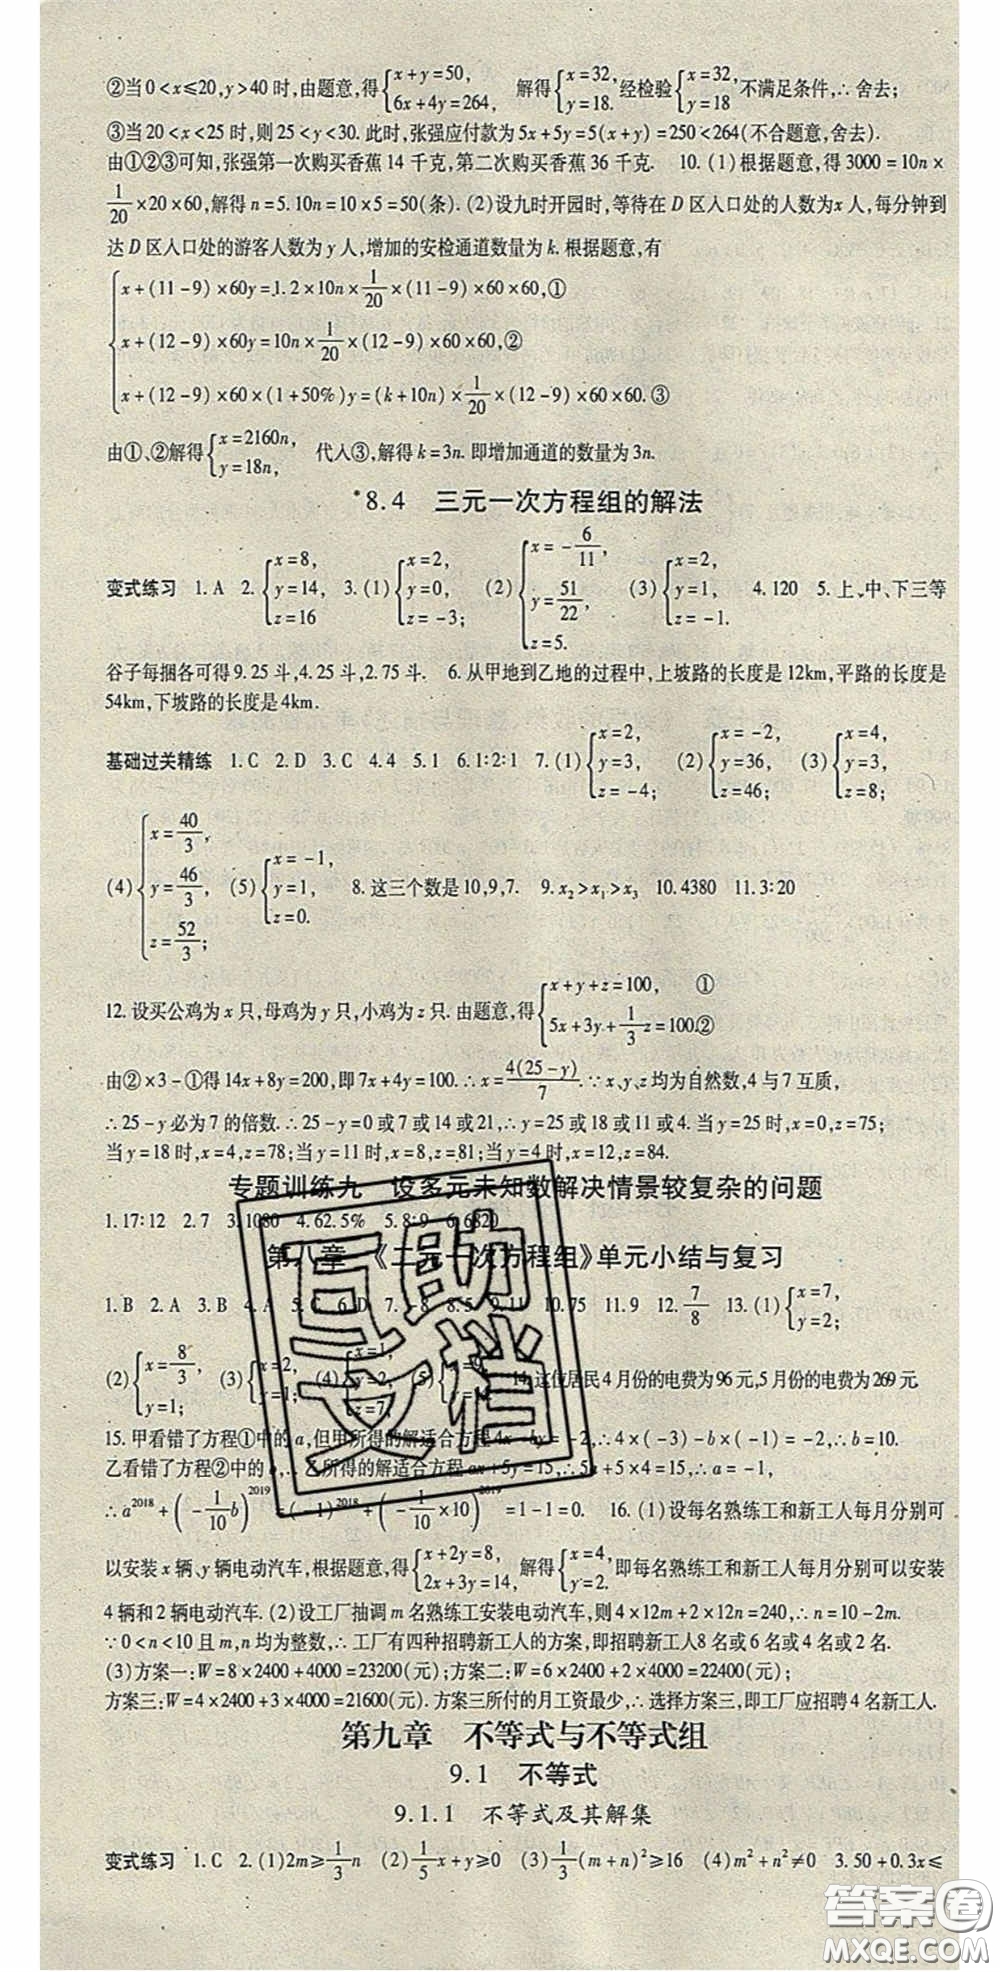 ②当0<x≤20,y>40时,由题意,得{x+y=50, 6x+4y=264, 解得{x=32, y=18. 经检验{x=32, y=18 不满足条件,∴舍去;
③当20<x<25时,则25<y<30.此时,张强应付款为5x+5y=5(x+y)=250<264(不合题意,舍去).
由①②③可知,张强第一次购买香蕉14千克,第二次购买香蕉36千克. 10.(1)根据题意,得3000=10n×
1/20×20×60,解得n=5.10n=10×5=50(条).(2)设九时开园时,等待在D区入口处的人数为x人,每分钟到
达D区入口处的游客人数为y人,增加的安检通道数量为k.根据题意,有
{x+(11-9)×60y=1.2×10n×1/20×(11-9)×60×60,①
x+(12-9)×60y=10n×1/20×(12-9)×60×60,②
x+(12-9)×60×(1+50%)y=(k+10n)×1/20×(12-9)×60×60.③
由①、②解得{x=2160n, y=18n, 代入③,解得k=3n.即增加通道的数量为3n.
*8.4 三元一次方程组的解法
变式练习 1.A 2.{x=8, y=14, z=16 3.(1){x=2, y=0, z=-3; (2){x=-6/11, y=51/22, z=5. (3){x=2, y=1, z=-1. 4.120 5.上、中、下三等
谷子每捆各可得9.25斗,4.25斗,2.75斗. 6.从甲地到乙地的过程中,上坡路的长度是12km,平路的长度是
54km,下坡路的长度是4km.
基础过关精练 1.C 2.D 3.C 4.4 5.1 6.1∶2∶1 7.(1){x=2, y=3, z=-4; (2){x=-2, y=36, z=46; (3){x=4, y=3, z=8;
(4){x=40/3, y=46/3, z=52/3; (5){x=-1, y=1, z=0. 8.这三个数是10,9,7. 9.x₂>x₁>x₃ 10.4380 11.3∶20
12.设买公鸡为x只,母鸡为y只,小鸡为z只.由题意,得{x+y+z=100, ① 5x+3y+1/3z=100.②
由②×3-①得14x+8y=200,即7x+4y=100.∴x=4(25-y)/7.∵x、y、z均为自然数,4与7互质,
∴25-y必为7的倍数.∴25-y=0或7或14或21,∴y=25或18或11或4.当y=25时,x=0,z=75;
当y=18时,x=4,z=78;当y=11时,x=8,z=81;当y=4时,x=12,z=84.
专题训练九 设多元未知数解决情景较复杂的问题
1.17∶12 2.7 3.1080 4.62.5% 5.8∶9 6.6820
第八章 《二元一次方程组》单元小结与复习
1.B 2.A 3.B 4.A 5.C 6.D 7.-8 8.5 9.11 10.75 11.9 12.7/8 13.(1){x=7, y=2;
(2){x=8/3, y=1; (3){x=2, y=1; (4){x=1, y=2, z=7; (5) 14.这位居民4月份的电费为96元,5月份的电费为269元.
15.甲看错了方程①中的a,但甲所得的解适合方程4x-by=-2,∴4×(-3)-b×(-1)=-2,∴b=10.
乙看错了方程②中的b,∴乙所得的解适合方程ax+5y=15,∴5a+5×4=15,∴a=-1,
∴a²⁰¹⁸+(-1/10b)²⁰¹⁹=(-1)²⁰¹⁸+(-1/10×10)²⁰¹⁹=1-1=0. 16.(1)设每名熟练工和新工人每月分别可
以安装x辆、y辆电动汽车,根据题意,得{x+2y=8, 2x+3y=14, 解得{x=4, y=2. 即每名熟练工和新工人每月分别可以安装
4辆和2辆电动汽车.(2)设工厂抽调m名熟练工安装电动汽车,则4×12m+2×12n=240,∴n=10-2m.
∵0<n<10且m,n均为整数,∴工厂有四种招聘新工人的方案,即招聘新工人8名或6名或4名或2名.
(3)方案一:W=8×2400+4000=23200(元);方案二:W=6×2400+2×4000=22400(元);
方案三:W=4×2400+3×4000=21600(元).方案三所付的月工资最少,∴选择方案三,即工厂应招聘4名新工人.
第九章 不等式与不等式组
9.1 不等式
9.1.1 不等式及其解集
变式练习 1.C 2.(1)2m≥1/3n (2)1/5x+y≥0 (3)1/3(m+n)²≥16 (4)m²+n²≠0 3.50+0.3x≤
互助
文档
答案圈
MXQE.COM